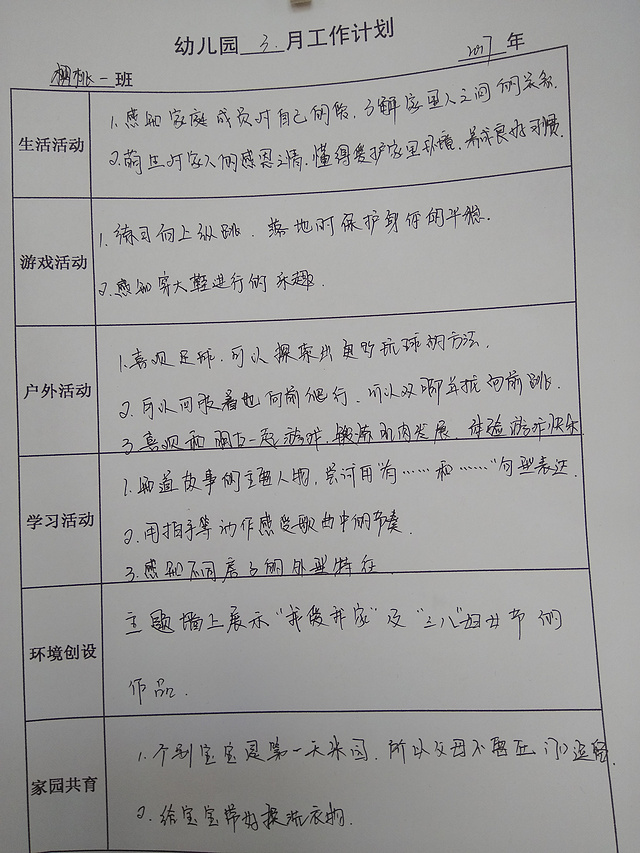 幼儿园 3. 月工作计划
2017 年
樱桃一班
生活活动
1.感知家庭成员对自己的爱,了解家里人之间的关系.
2.萌生对家人的感恩之情,懂得爱护家里环境,养成良好习惯.
游戏活动
1.练习向上纵跳,落地时保护身体的平稳.
2.感知穿大鞋进行的乐趣.
户外活动
1.喜欢足球,可以探索出更多玩球的方法.
2.可以向前爬行,可以双脚并拢向前跳.
3.喜欢和朋友一起游戏,锻炼肌肉发展,体验游戏快乐
学习活动
1.知道故事的主要人物,尝试用"有……和……"句型表达.
2.用拍手等动作感受歌曲中的节奏.
3.感知不同房子的外型特征
环境创设
主题墙上展示"我爱我家"及"三八"妇女节的
作品.
家园共育
1.个别宝宝是第一天来园,所以父母不要在门口逗留.
2.给宝宝带好换洗衣物.